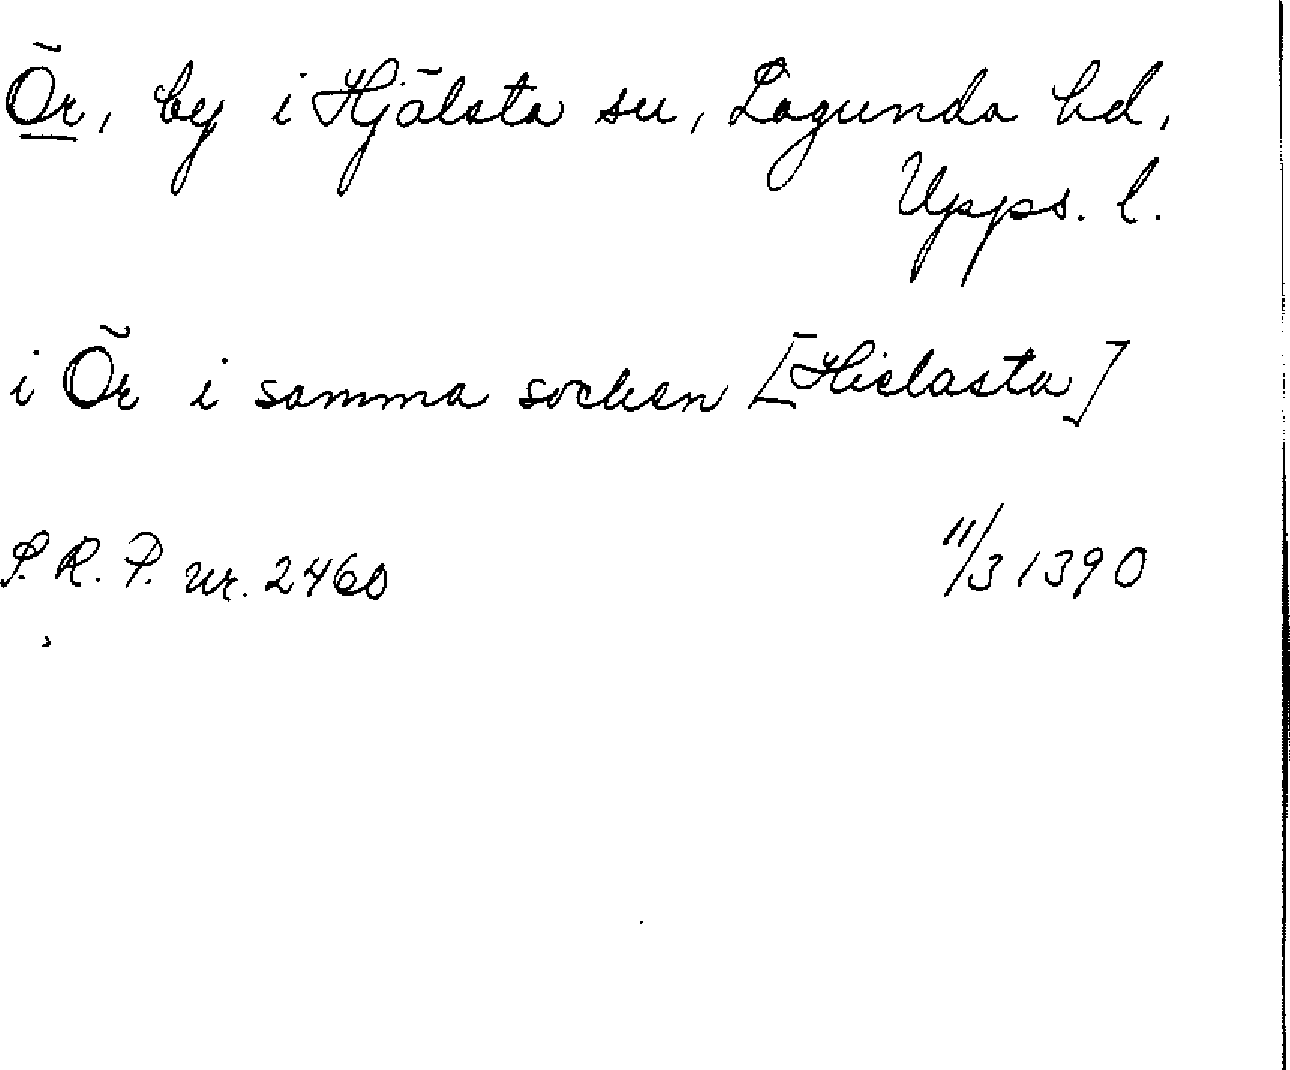 Ör, by i Hjälsta sn, Lagunda hd,
Upps. l.
i Ör i samma socken [Hielasta]
S.R.P. nr. 2460 11/3 1390